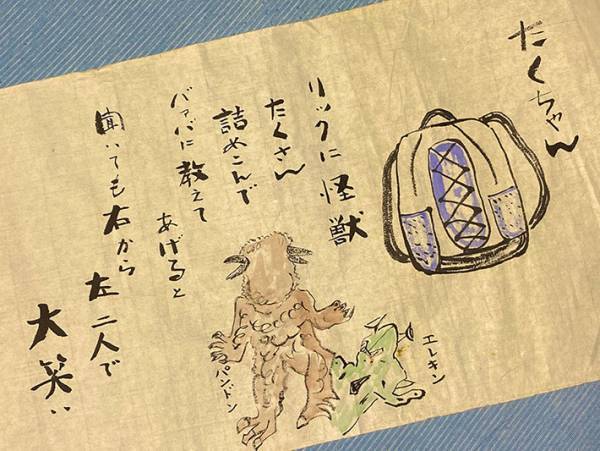 たくちゃん
リックに怪獣
たくさん
詰めこんで
バァバに教えて
あげると
聞いても右から
左二人で
大笑い
パンドン
エレキン